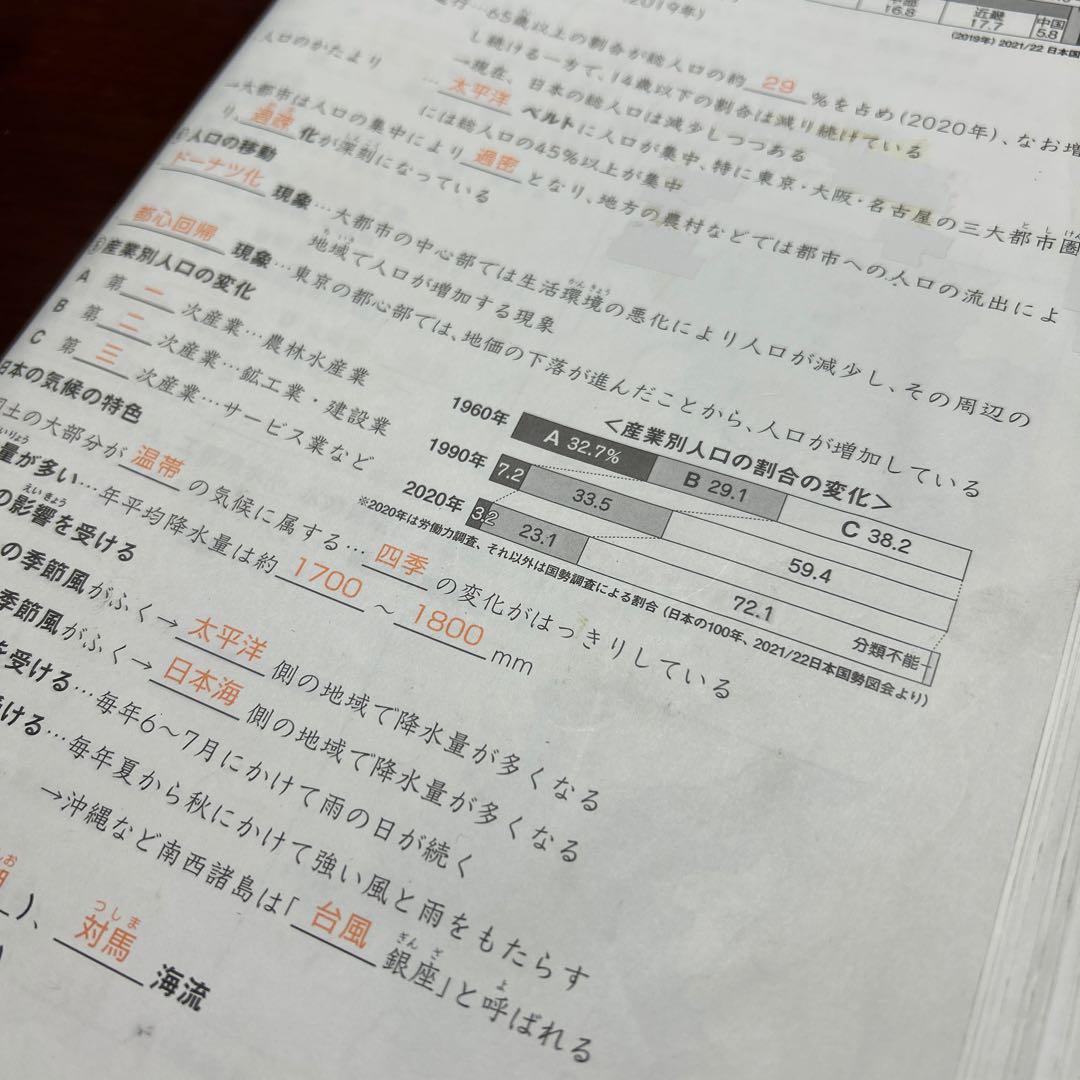 2019年)
16.8
近畿
17.7
中国
5.8
(2019年) 2021/22 日本国
…65歳以上の割合が総人口の約 29 %を占め(2020年)、なお増
し続ける一方で、14歳以下の割合は減り続けている
→現在、日本の総人口は減少しつつある
人口のかたより
…太平洋 ベルトに人口が集中、特に東京・大阪・名古屋の三大都市圏
としけん
には総人口の45%以上が集中
→大都市は人口の集中により 過密 となり、地方の農村などでは都市への人口の流出によ
り、過疎 化が深刻になっている
しんこく
人口の移動
ドーナツ化 現象…大都市の中心部では生活環境の悪化により人口が減少し、その周辺の
かんきょう
地域で人口が増加する現象
ちいき
都心回帰 現象…東京の都心部では、地価の下落が進んだことから、人口が増加している
産業別人口の変化
A 第 一 次産業…農林水産業
B 第 二 次産業…鉱工業・建設業
C 第 三 次産業…サービス業など
<産業別人口の割合の変化>
1960年 A 32.7% B 29.1 C 38.2
1990年 7.2 33.5 59.4
2020年 3.2 23.1 72.1
分類不能
※2020年は労働力調査、それ以外は国勢調査による割合(日本の100年、2021/22日本国勢図会より)
日本の気候の特色
国土の大部分が 温帯 の気候に属する…四季 の変化がはっきりしている
量が多い…年平均降水量は約 1700 ～ 1800 mm
の影響を受ける
えいきょう
の季節風がふく→ 太平洋 側の地域で降水量が多くなる
季節風がふく→ 日本海 側の地域で降水量が多くなる
を受ける…毎年6～7月にかけて雨の日が続く
ける…毎年夏から秋にかけて強い風と雨をもたらす
→沖縄など南西諸島は「 台風 銀座」と呼ばれる
ぎんざ
よ
)、対馬 海流
つしま